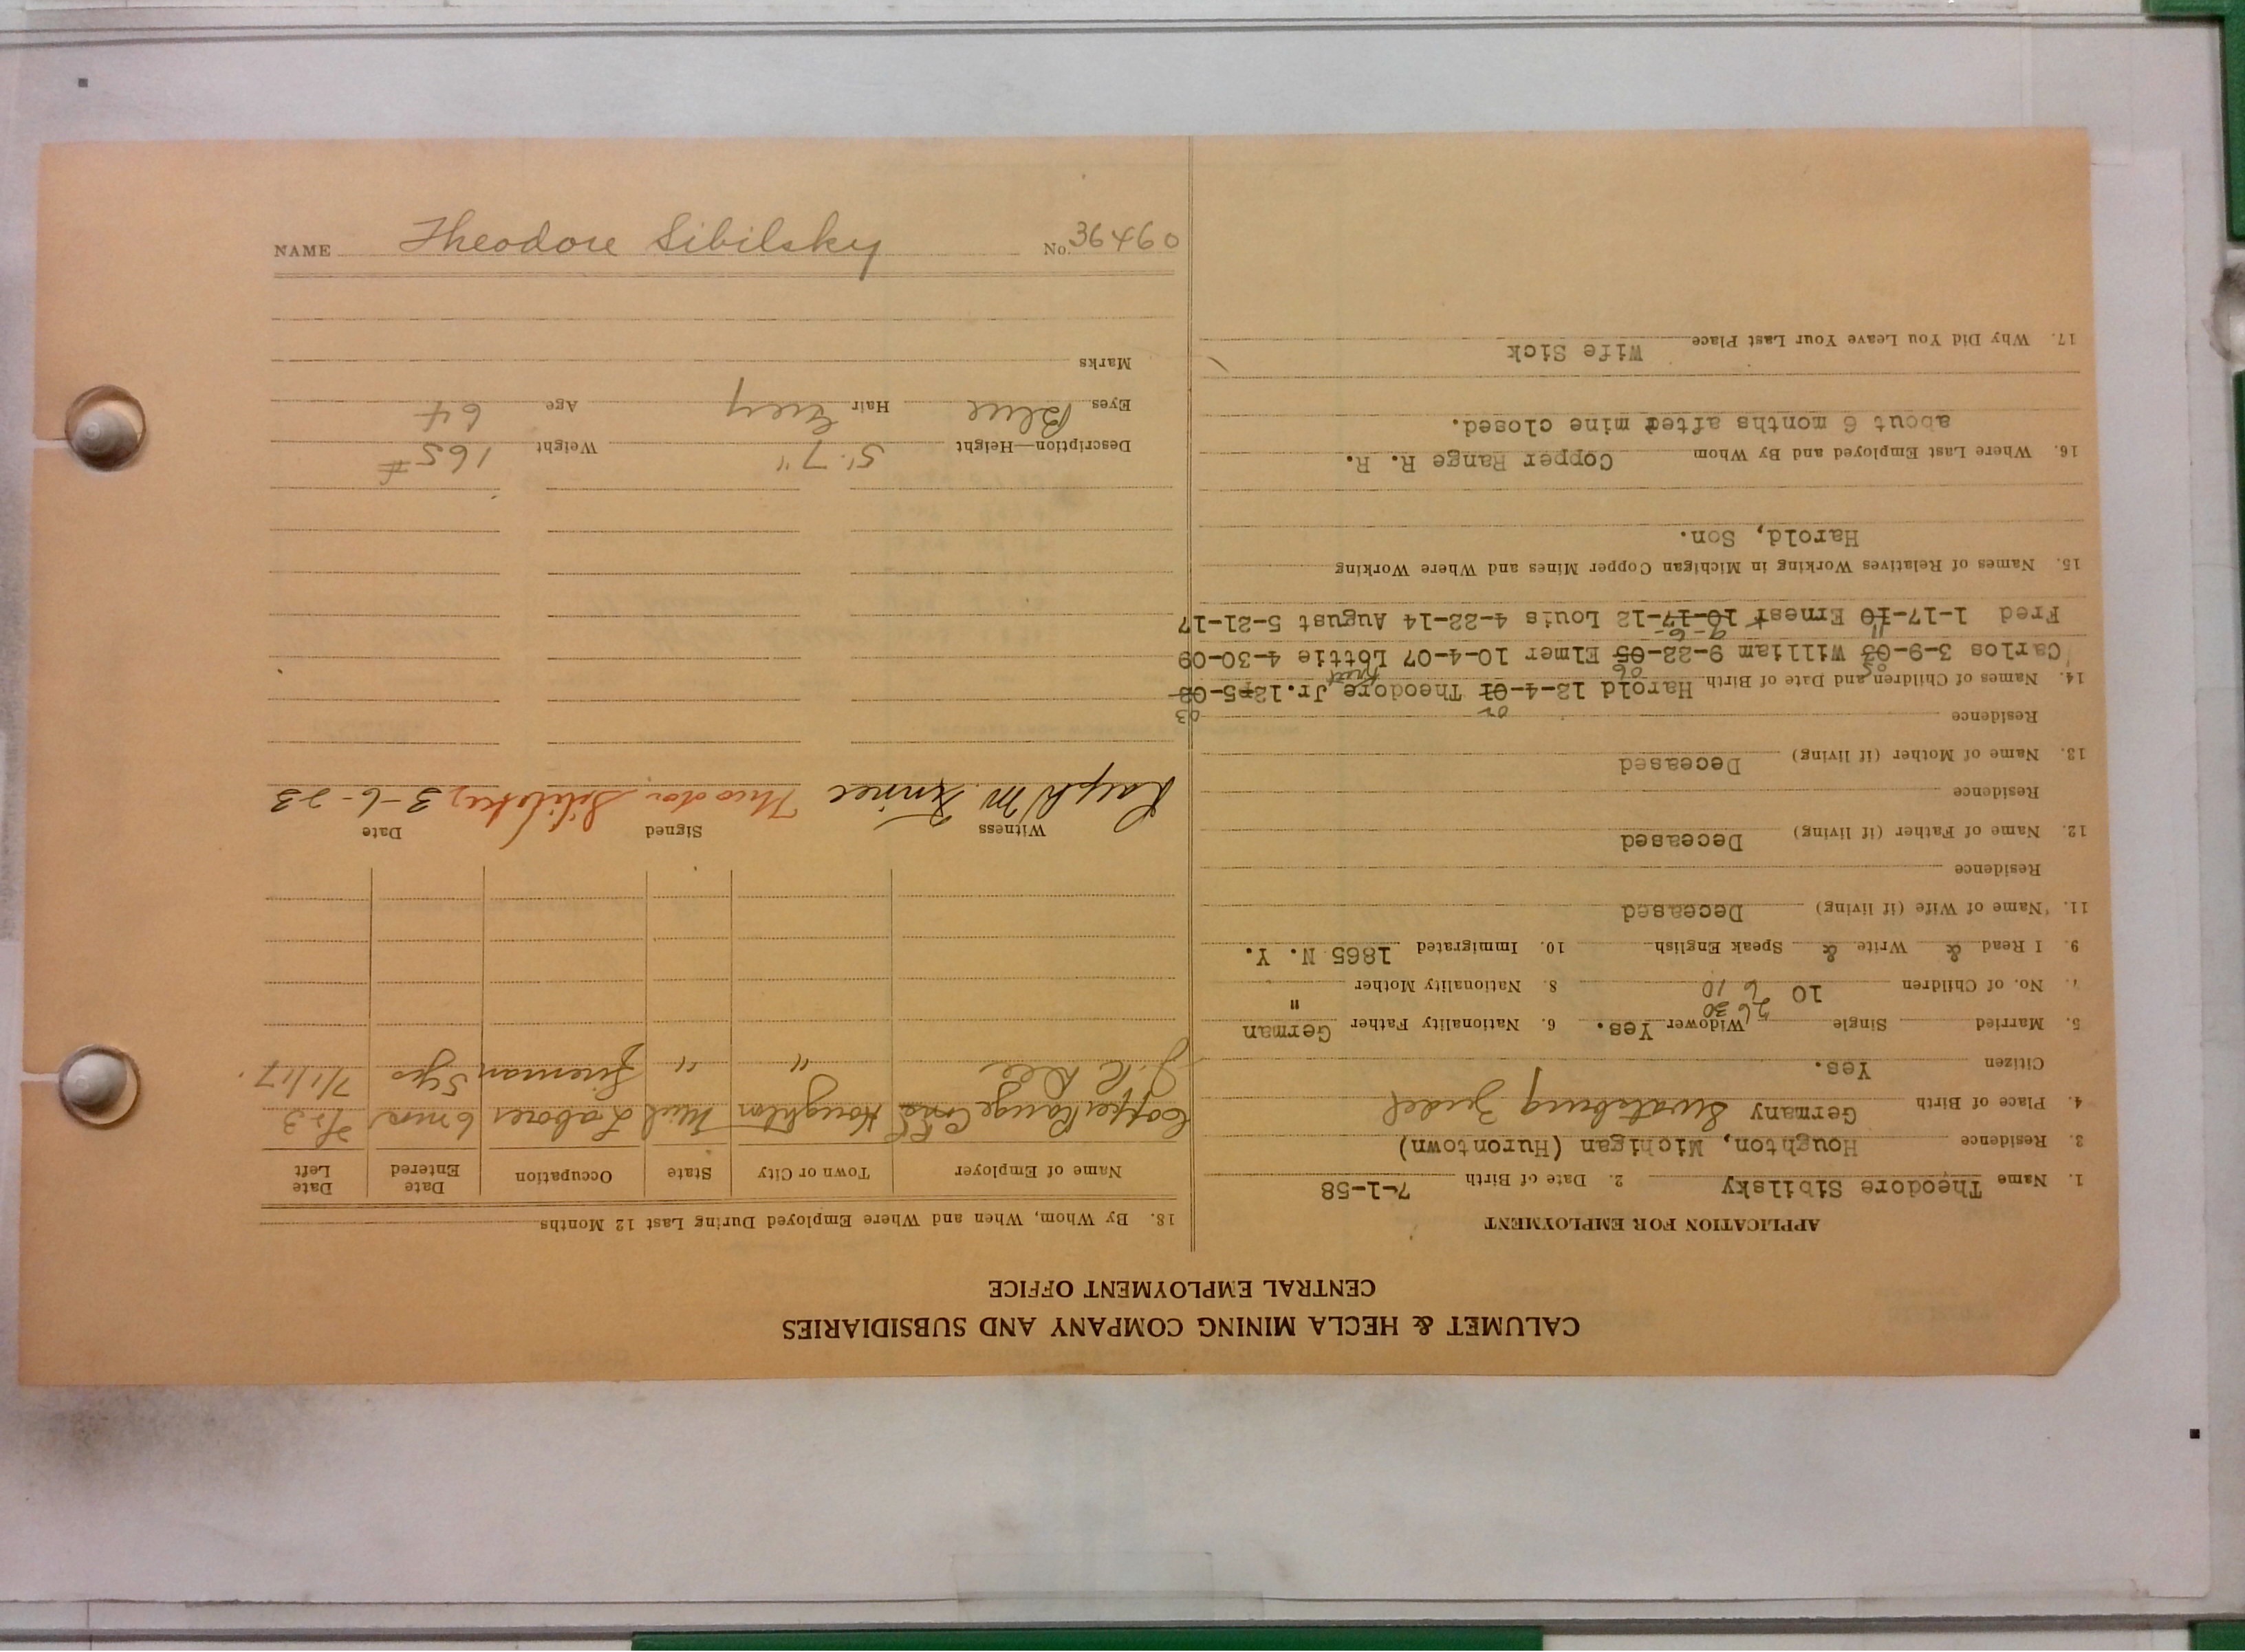 NAME Theodore Sibilsky No. 36460
CALUMET & HECLA MINING COMPANY AND SUBSIDIARIES
CENTRAL EMPLOYMENT OFFICE
APPLICATION FOR EMPLOYMENT
1. Name Theodore Sibilsky 2. Date of Birth 7-1-58
3. Residence Houghton, Michigan (Hurontown)
4. Place of Birth Germany
Citizen Yes.
5. Married Single Widower Yes. 6. Nationality Father German
26 30
7. No. of Children 10 6 10 8. Nationality Mother "
9. I Read & Write & Speak English 10. Immigrated 1865 N. Y.
11. Name of Wife (if living) Deceased
Residence
12. Name of Father (if living) Deceased
Residence
13. Name of Mother (if living) Deceased
Residence
02 03
14. Names of Children and Date of Birth Harold 12-4-01 Theodore Jr. 12-5-02
05 06
Carlos 3-9-03 William 9-22-05 Elmer 10-4-07 Lottie 4-30-09
11 9-6-
Fred 1-17-10 Ernest 10-17-12 Louis 4-22-14 August 5-21-17
15. Names of Relatives Working in Michigan Copper Mines and Where Working
Harold, Son.
16. Where Last Employed and By Whom Copper Range R. R.
about 6 months after mine closed.
17. Why Did You Leave Your Last Place Wife Sick
18. By Whom, When and Where Employed During Last 12 Months
Name of Employer Town or City State Occupation Date Entered Date Left
Copper Range Cons Houghton Mich Laborer 6 mos
" " Fireman 5 yrs 7/1/17
Witness Signed Date
Ralph M. Theodor Sibilsky 3-6-23
Description—Height 5' 7" Weight 165 #
Eyes Blue Hair Grey Age 64
Marks